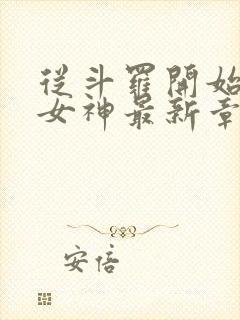 從斗羅開始
女神最新章
安倍